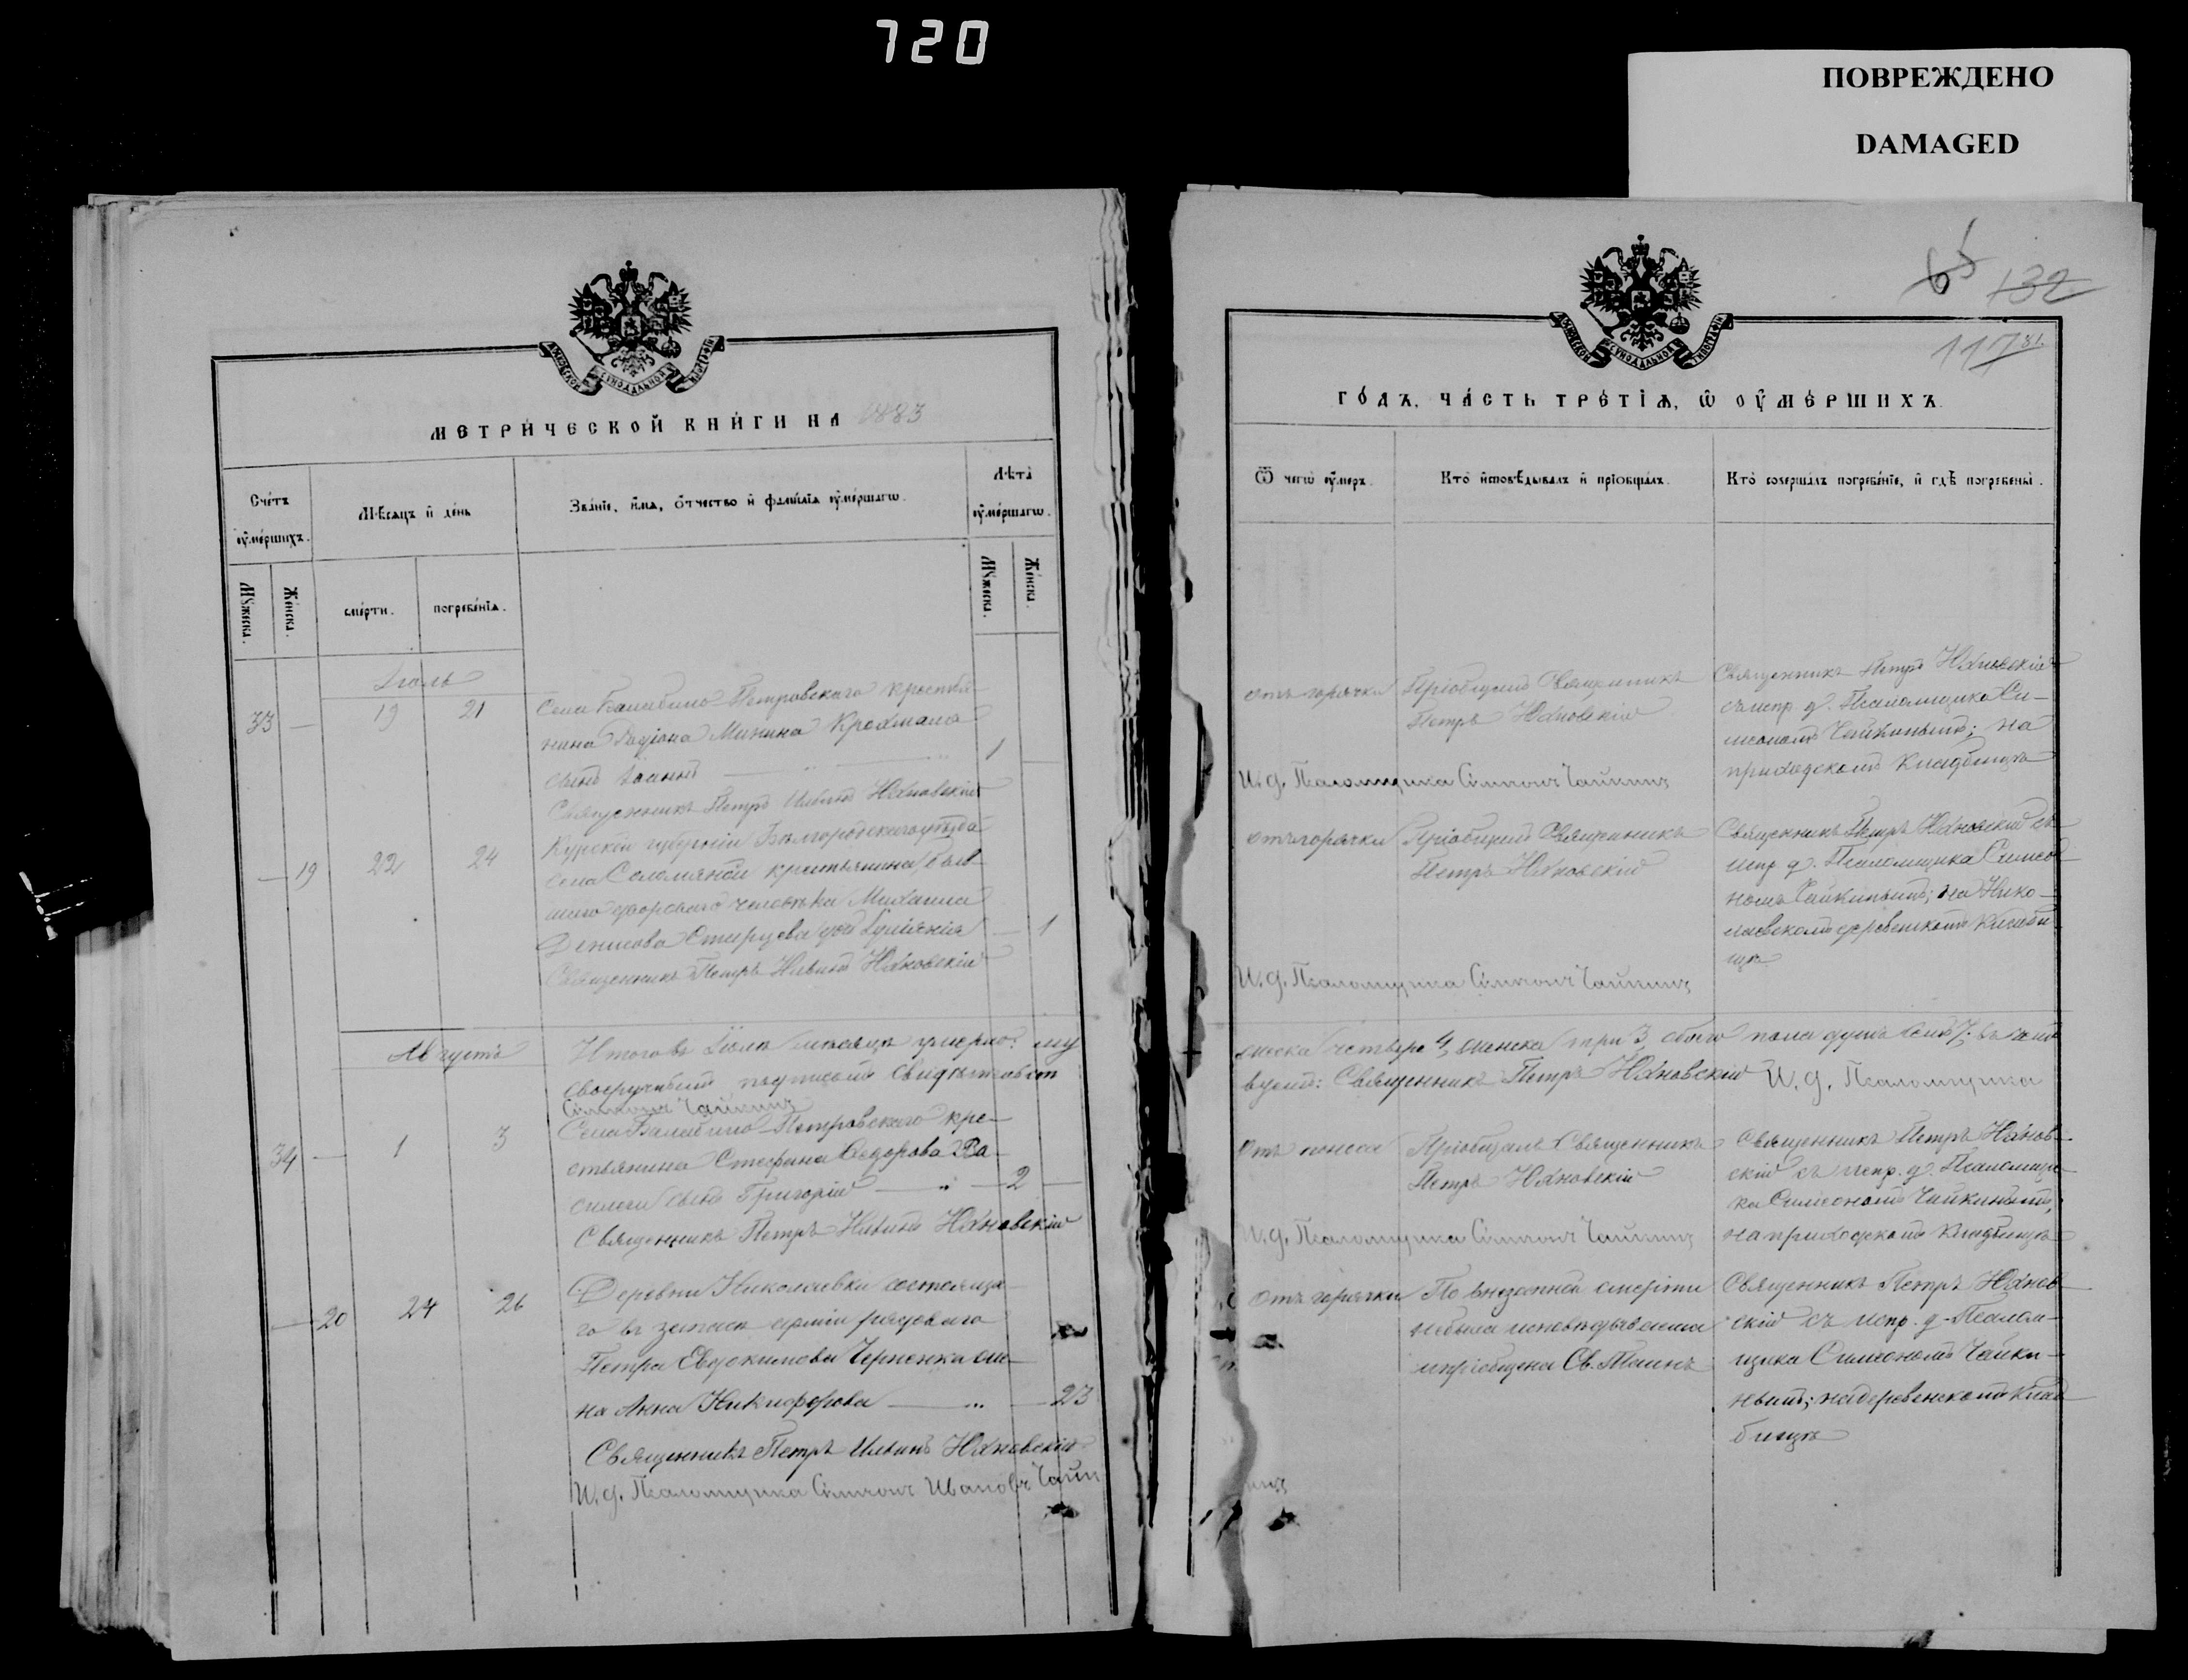 720
ПОВРЕЖДЕНО
DAMAGED
МЕТРИЧЕСКОЙ КНИГИ НА 1883
Счетъ умершихъ.
Мѣсяцъ и день
Званіе, имя, отчество и фамилія умершагѡ.
Лѣта умершагѡ.
Мужеска.
Женска.
смерти.
погребенія.
Мужеска.
Женска.
Іюль
33 — 19 21
Села Балабино-Петровскаго крестья-
нина Родіона Минина
сынъ Іоаннъ — 1
Священникъ Петръ Ильинъ Юхновскій
— 19 22 24
Курскій губерніи Бѣлгородскаго уѣзда
села Соломяной крестьянина быв-
шаго двороваго человѣка Михаила
Денисова дочь — 1
Священникъ Петръ Ильинъ Юхновскій
Августъ
Итого въ Іюлѣ мѣсяцѣ умерло: му
своеручнымъ подписомъ свидѣтельст
Симеонъ Чайкинъ
34 — 1 3
Села Балабино-Петровскаго кре-
стьянина Стефана Ѳедорова
сынъ Григорій — 2 —
Священникъ Петръ Ильинъ Юхновскій
— 20 24 26
Деревни Николаевки состояща-
го въ запасѣ арміи рядоваго
Петра Евдокимова Черненка же-
на Анна Никифорова — 23
Священникъ Петръ Ильинъ Юхновскій
И. д. Псаломщика Симеонъ Ивановъ Чайкинъ
65 132
117 81.
ГОДЪ, ЧАСТЬ ТРЕТІѦ, Ѡ ОУМЕРШИХЪ.
Ѿ чегѡ умеръ.
Кто исповѣдывалъ и пріобщалъ.
Кто совершалъ погребеніе, и гдѣ погребены.
отъ горячки
Пріобщилъ Священникъ
Петръ Юхновскій
Священникъ Петръ Юхновскій
съ испр. д. Псаломщика Си-
меономъ Чайкинымъ; на
приходскомъ кладбищѣ
И. д. Псаломщика Симеонъ Чайкинъ
отъ горячки
Пріобщилъ Священникъ
Петръ Юхновскій
Священникъ Петръ Юхновскій съ
испр. д. Псаломщика Симео
номъ Чайкинымъ; на Нико-
лаевскомъ деревенскомъ кладби
щѣ
И. д. Псаломщика Симеонъ Чайкинъ
жеска четыре 4, женска три 3, обоего пола душъ семь 7; въ чемъ
вуемъ: Священникъ Петръ Юхновскій И. д. Псаломщика
Отъ поноса
Пріобщалъ Священникъ
Петръ Юхновскій
Священникъ Петръ Юхнов-
скій съ испр. д. Псаломщи-
ка Симеономъ Чайкинымъ;
на приходскомъ кладбищѣ
И. д. Псаломщика Симеонъ Чайкинъ
Отъ горячки
По внезапной смерти
небыла исповѣдываема
и пріобщена Св. Таинъ
Священникъ Петръ Юхнов
скій съ испр. д. Псалом-
щика Симеономъ Чайки-
нымъ; на деревенскомъ клад
бищѣ